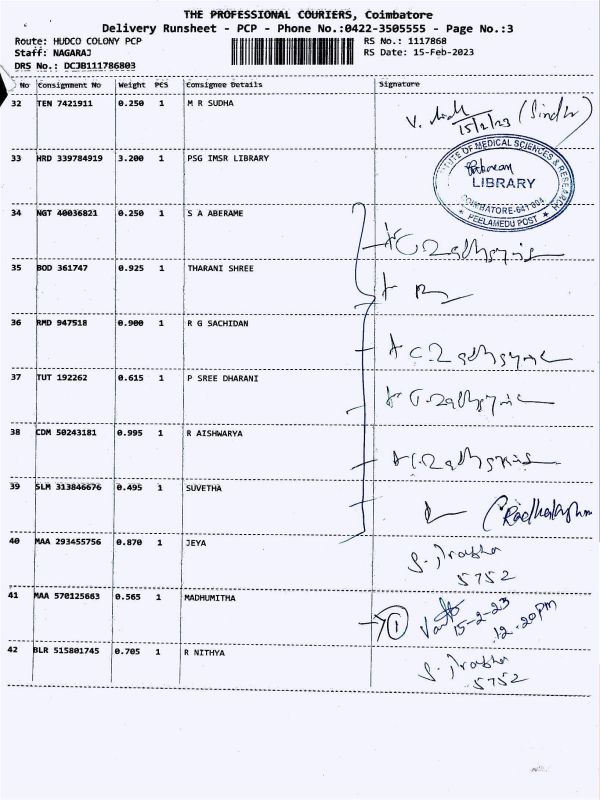 THE PROFESSIONAL COURIERS, Coimbatore
Delivery Runsheet - PCP - Phone No.:0422-3505555 - Page No.:3
Route: HUDCO COLONY PCP
RS No.: 1117868
Staff: NAGARAJ
RS Date: 15-Feb-2023
DRS No.: DCJB111786803
No Consignment No Weight PCS Consignee Details Signature
32 TEN 7421911 0.250 1 M R SUDHA
15/2/23
33 HRD 339784919 3.200 1 PSG IMSR LIBRARY
OF MEDICAL SCIENCES & RESEARCH
LIBRARY
COIMBATORE-641 004
PEELAMEDU POST
34 NGT 40036821 0.250 1 S A ABERAME
35 BOD 361747 0.925 1 THARANI SHREE
36 RMD 947518 0.900 1 R G SACHIDAN
37 TUT 192262 0.615 1 P SREE DHARANI
38 CDM 50243181 0.995 1 R AISHWARYA
39 SLM 313846676 0.495 1 SUVETHA
40 MAA 293455756 0.870 1 JEYA
5752
41 MAA 570125663 0.565 1 MADHUMITHA
1 15-2-23
12.20pm
42 BLR 515801745 0.705 1 R NITHYA
5752